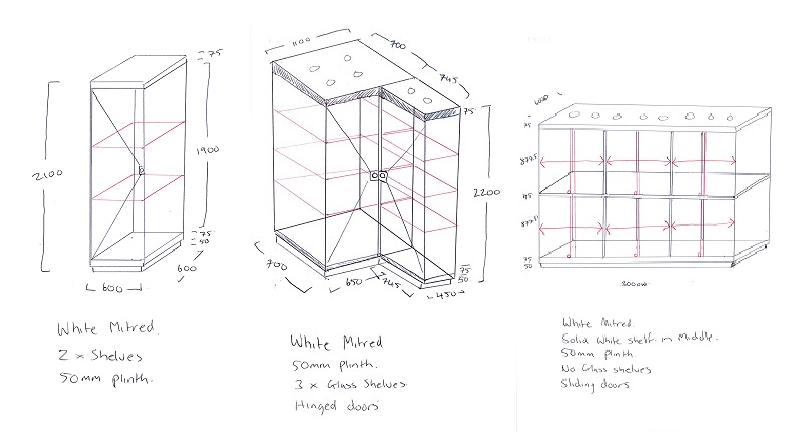 75
2100
1900
75
50
600
600
White Mitred.
2 x Shelves
50mm plinth.
1100
700
745
75
2200
700
650
745
75
50
450
White Mitred
50mm plinth.
3 x Glass Shelves.
Hinged doors
75
877.5
75
877.5
75
50
White Mitred.
Solid White shelf in Middle.
50mm plinth.
No Glass shelves
Sliding doors